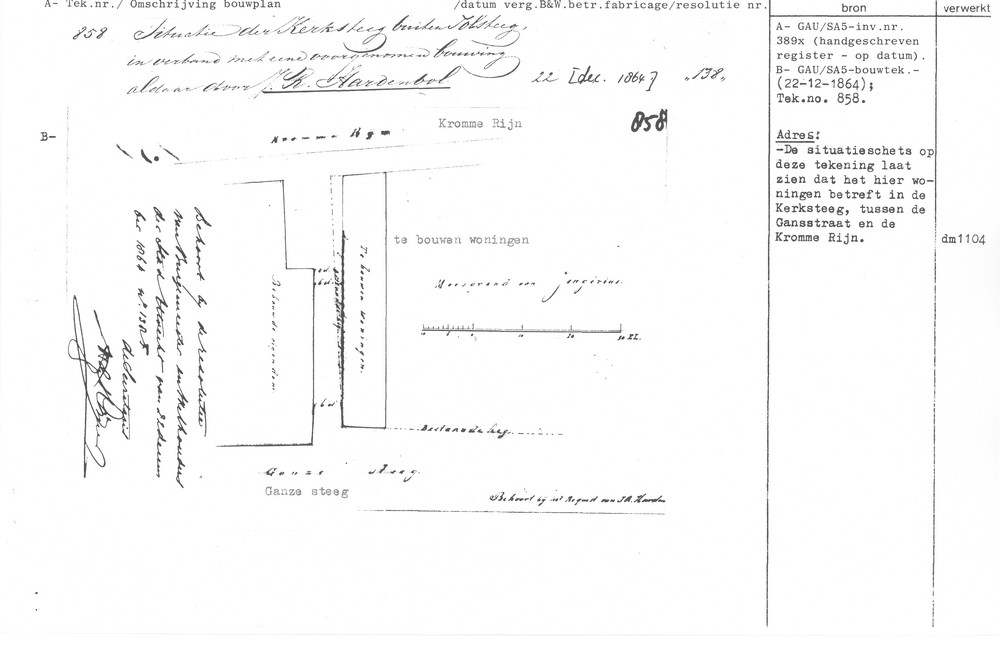 A- Tek.nr./ Omschrijving bouwplan /datum verg.B&W.betr.fabricage/resolutie nr.
bron
verwerkt
858 Situatie der Kerksteeg buiten Tolsteeg,
in verband met eene voorgenomen bouwing
aldaar door J. R. Hardenbol 22 [dec. 1864] "138"
A- GAU/SA5-inv.nr.
389x (handgeschreven
register - op datum).
B- GAU/SA5-bouwtek.-
(22-12-1864);
Tek.no. 858.
Adres:
-De situatieschets op
deze tekening laat
zien dat het hier wo-
ningen betreft in de
Kerksteeg, tussen de
Gansstraat en de
Kromme Rijn.
dm1104
B-
Kromme Rijn
Kromme Rijn
858
te bouwen woningen
Te bouwen woningen.
Behoort bij de resolutie
van Burgemeester en Wethouders
der Stad Utrecht van 22 decem
ber 1864 no.
de Secretaris
10 20 30 El.
Bestaande heg.
Ganze steeg.
Ganze steeg
Behoort bij het Request van J.R. Harden